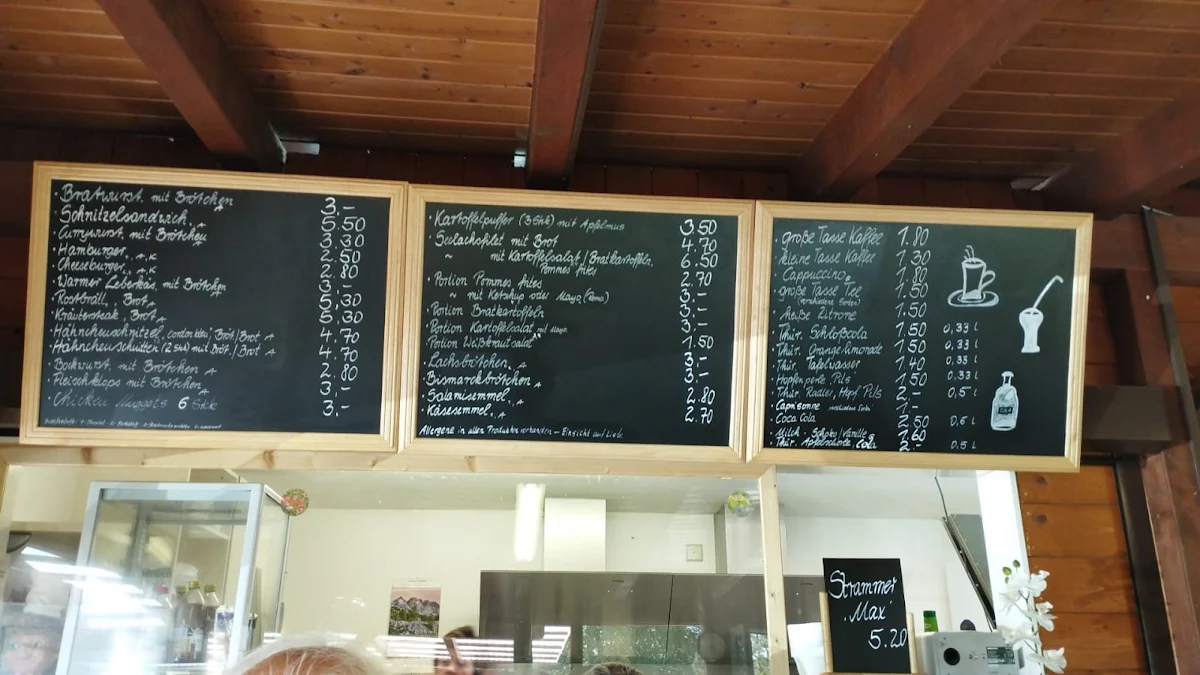 · Bratwurst mit Brötchen 3,-
· Schnitzelsandwich A 5.50
· Currywurst mit Brötchen 3.30
· Hamburger A,K 2.50
· Cheeseburger A,K 2.80
· Warmer Leberkäs mit Brötchen 3,-
· Rostbrätl, Brot A 5.30
· Kräutersteak, Brot A 5.30
· Hähnchenschnitzel, cordon bleu, Bröt/Brot A 4.70
· Hähnchenschnitten (2 Stk) mit Bröt./Brot A 4.70
· Bockwurst mit Brötchen A 2.80
· Fleischklops mit Brötchen A 3,-
· Chicken Nuggets 6 Stk 3.-
· Kartoffelpuffer (3 Stk) mit Apfelmus 3.50
· Seelachsfilet mit Brot 4.70
~ mit Kartoffelsalat / Bratkartoffeln, 6.50
Pommes frites
· Portion Pommes frites 2.70
~ mit Ketchup oder Mayo 3,-
· Portion Bratkartoffeln 3,-
· Portion Kartoffelsalat mit Mayo 3,-
· Portion Weißkrautsalat 1.50
· Lachsbrötchen A 3,-
· Bismarckbrötchen A 3,-
· Salamisemmel A 2.80
· Käsesemmel A 2.70
Allergene in allen Produkten vorhanden - Einsicht auf Liste
· große Tasse Kaffee 1.80
· kleine Tasse Kaffee 1.30
· Cappuccino 1.80
· große Tasse Tee 1.50
(verschiedene Sorten)
· heiße Zitrone 1.50
· Thür. Schloßcola 1.50 0,33 l
· Thür. Orangenlimonade 1.50 0,33 l
· Thür. Tafelwasser 1.40 0,33 l
· Hopfenperle Pils 1.50 0,33 l
· Thür. Radler, Hopf Pils 2,- 0,5 l
· Caprisonne verschiedene Sorten 1,-
· Coca Cola 2.50 0,5 l
· Milch - Schoko/Vanille 1.60
· Thür. Apfelschorle, Cola 2.- 0,5 l
Strammer
Max
5.20